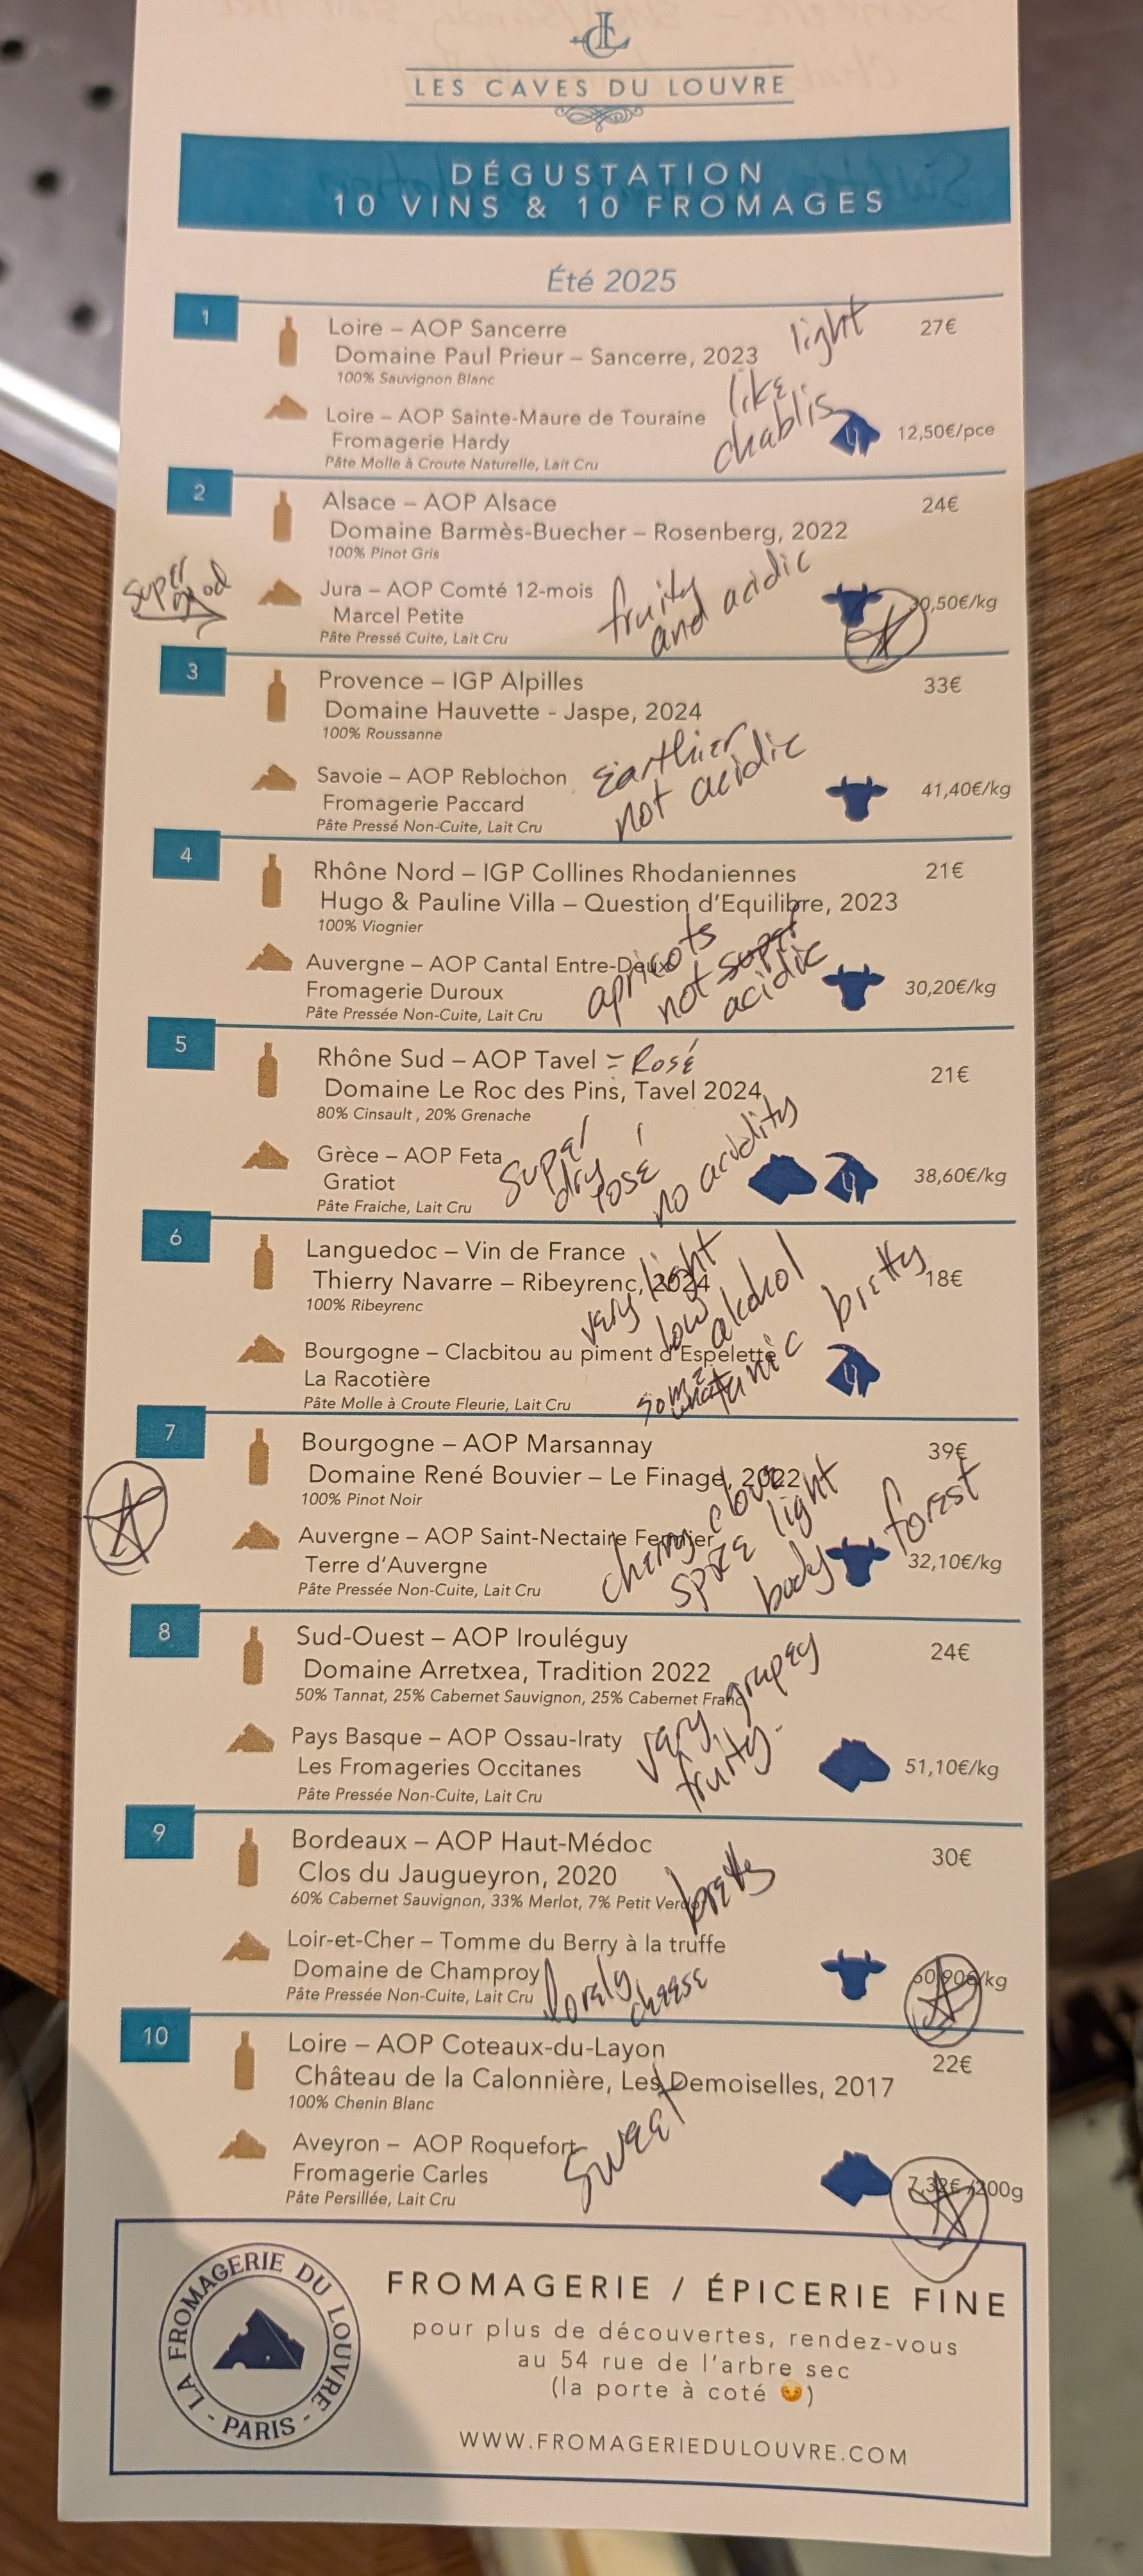 LES CAVES DU LOUVRE
DÉGUSTATION
10 VINS & 10 FROMAGES
Été 2025
1
Loire – AOP Sancerre
27€
Domaine Paul Prieur – Sancerre, 2023
100% Sauvignon Blanc
light
like
chablis
Loire – AOP Sainte-Maure de Touraine
Fromagerie Hardy
12,50€/pce
Pâte Molle à Croute Naturelle, Lait Cru
2
Alsace – AOP Alsace
24€
Domaine Barmès-Buecher – Rosenberg, 2022
100% Pinot Gris
super
good
Jura – AOP Comté 12-mois
Marcel Petite
Pâte Pressé Cuite, Lait Cru
fruity
and acidic
0,50€/kg
3
Provence – IGP Alpilles
33€
Domaine Hauvette - Jaspe, 2024
100% Roussanne
Savoie – AOP Reblochon
Fromagerie Paccard
41,40€/kg
Pâte Pressé Non-Cuite, Lait Cru
Earthier
not acidic
4
Rhône Nord – IGP Collines Rhodaniennes
21€
Hugo & Pauline Villa – Question d'Equilibre, 2023
100% Viognier
Auvergne – AOP Cantal Entre-Deux
Fromagerie Duroux
30,20€/kg
Pâte Pressée Non-Cuite, Lait Cru
apricots
not super
acidic
5
Rhône Sud – AOP Tavel = Rosé
21€
Domaine Le Roc des Pins, Tavel 2024
80% Cinsault , 20% Grenache
Grèce – AOP Feta
Gratiot
38,60€/kg
Pâte Fraiche, Lait Cru
super
dry
rosé
no acidity
6
Languedoc – Vin de France
18€
Thierry Navarre – Ribeyrenc, 2024
100% Ribeyrenc
very light
low alcohol
somewhat tannic
bretty
Bourgogne – Clacbitou au piment d'Espelette
La Racotière
Pâte Molle à Croute Fleurie, Lait Cru
7
Bourgogne – AOP Marsannay
39€
Domaine René Bouvier – Le Finage, 2022
100% Pinot Noir
Auvergne – AOP Saint-Nectaire Fermier
Terre d'Auvergne
32,10€/kg
Pâte Pressée Non-Cuite, Lait Cru
cherry clove
spice light
body
forest
8
Sud-Ouest – AOP Irouléguy
24€
Domaine Arretxea, Tradition 2022
50% Tannat, 25% Cabernet Sauvignon, 25% Cabernet Franc
Pays Basque – AOP Ossau-Iraty
Les Fromageries Occitanes
51,10€/kg
Pâte Pressée Non-Cuite, Lait Cru
very grapey
fruity.
9
Bordeaux – AOP Haut-Médoc
30€
Clos du Jaugueyron, 2020
60% Cabernet Sauvignon, 33% Merlot, 7% Petit Verdot
bretty
Loir-et-Cher – Tomme du Berry à la truffe
Domaine de Champroy
60,90€/kg
Pâte Pressée Non-Cuite, Lait Cru
lovely
cheese
10
Loire – AOP Coteaux-du-Layon
22€
Château de la Calonnière, Les Demoiselles, 2017
100% Chenin Blanc
sweet
Aveyron – AOP Roquefort
Fromagerie Carles
7,32€ /200g
Pâte Persillée, Lait Cru
LA FROMAGERIE DU LOUVRE
- PARIS -
FROMAGERIE / ÉPICERIE FINE
pour plus de découvertes, rendez-vous
au 54 rue de l'arbre sec
(la porte à coté 😏)
WWW.FROMAGERIEDULOUVRE.COM